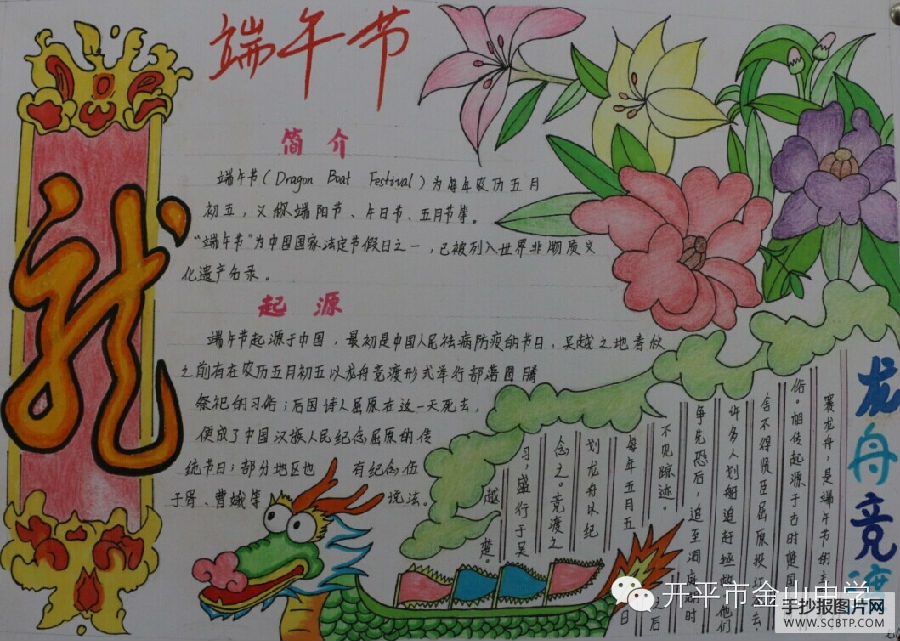 端午节
简介
端午节(Dragon Boat Festival)为每年农历五月
初五，又称端阳节、午日节、五月节等。
“端午节”为中国国家法定节假日之一，已被列入世界非物质文
化遗产名录。
起源
端午节起源于中国，最初是中国人民祛病防疫的节日，吴越之地春秋
之前有在农历五月初五以龙舟竞渡形式举行部落图腾
祭祀的习俗；后因诗人屈原在这一天死去，
便成了中国汉族人民纪念屈原的传
统节日；部分地区也 有纪念伍
子胥、曹娥等 说法。
龙
龙舟竞渡
赛龙舟，是端午节的主
俗。相传起源于古时楚国
舍不得贤臣屈原投 去
许多人划船追赶拯 他们
争先恐后，追至洞庭 时
不见踪迹。 之后
每年五月五日
划龙舟以纪
念之。竞渡之
习，盛行于吴
越 楚。
开平市金山中学
手抄报图片网
WWW.SCBTP.COM